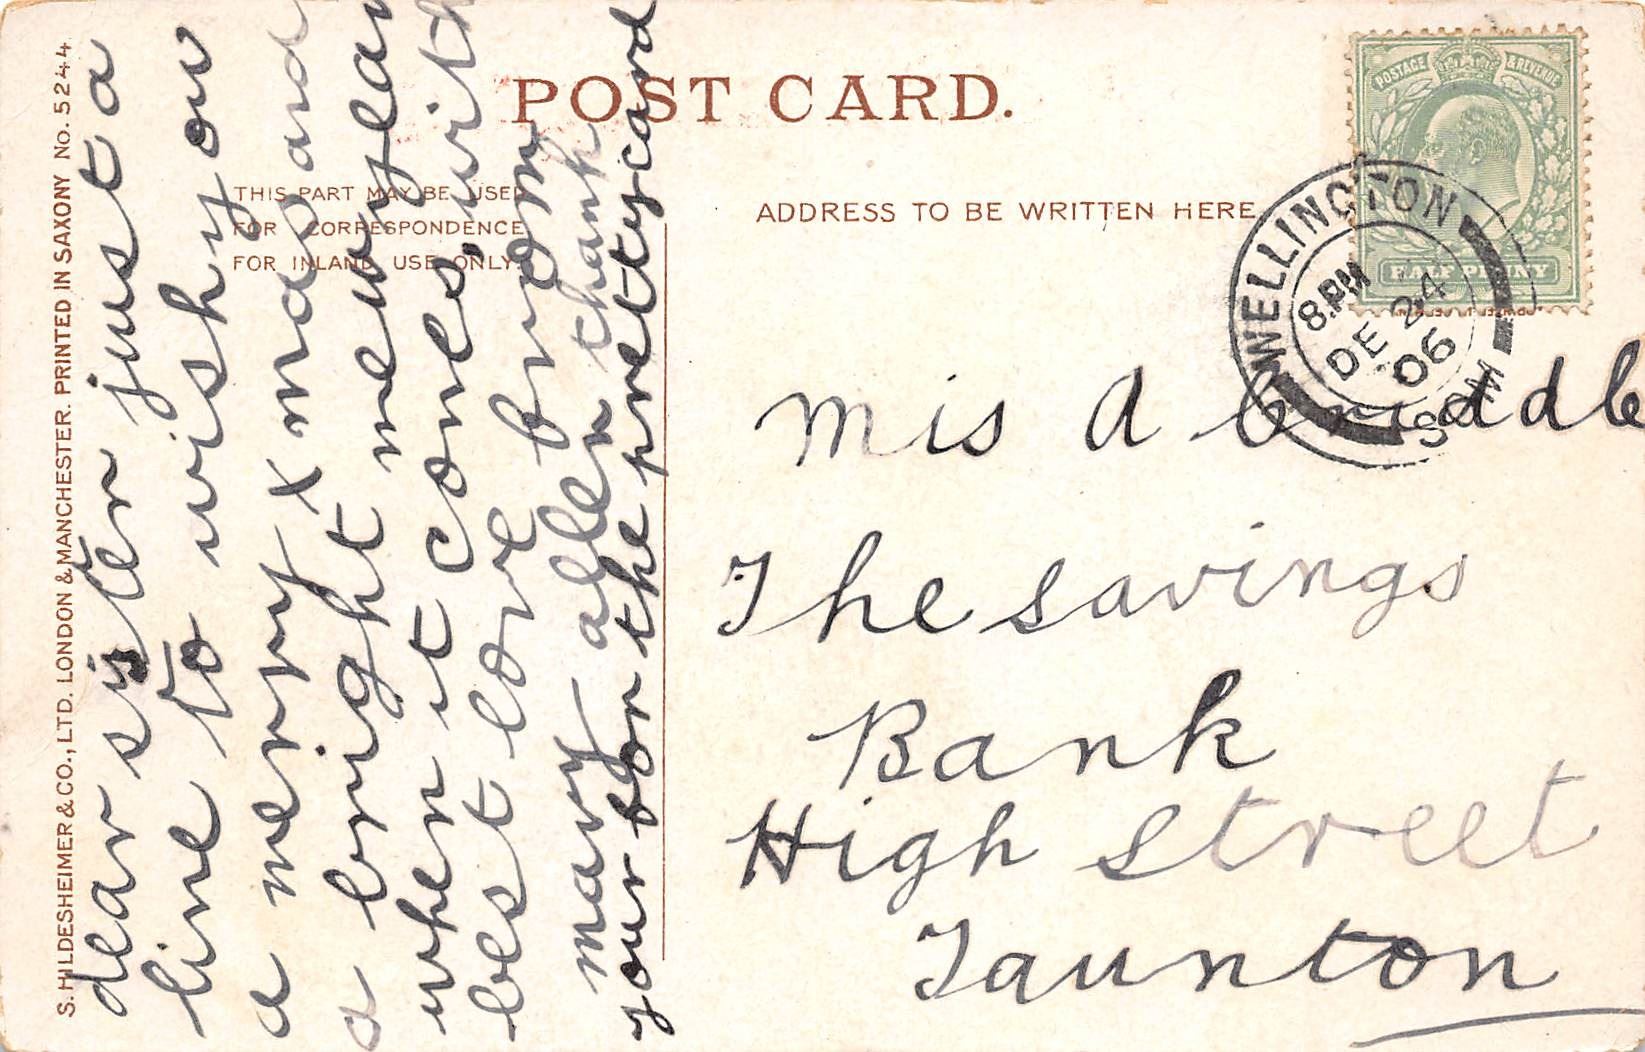 POST CARD.
THIS PART MAY BE USED
FOR CORRESPONDENCE
FOR INLAND USE ONLY.
ADDRESS TO BE WRITTEN HERE
S. HILDESHEIMER & CO., LTD. LONDON & MANCHESTER. PRINTED IN SAXONY No. 5244
dear sister just a
line to wish you
a merry X mas and
a bright new year
when it comes, with
best love from
mary allen thank
your for the pretty card
POSTAGE & REVENUE
HALF PENNY
WELLINGTON
8.PM
DE 24
06
SOM
mis A briddle
The savings
Bank
High street
Taunton